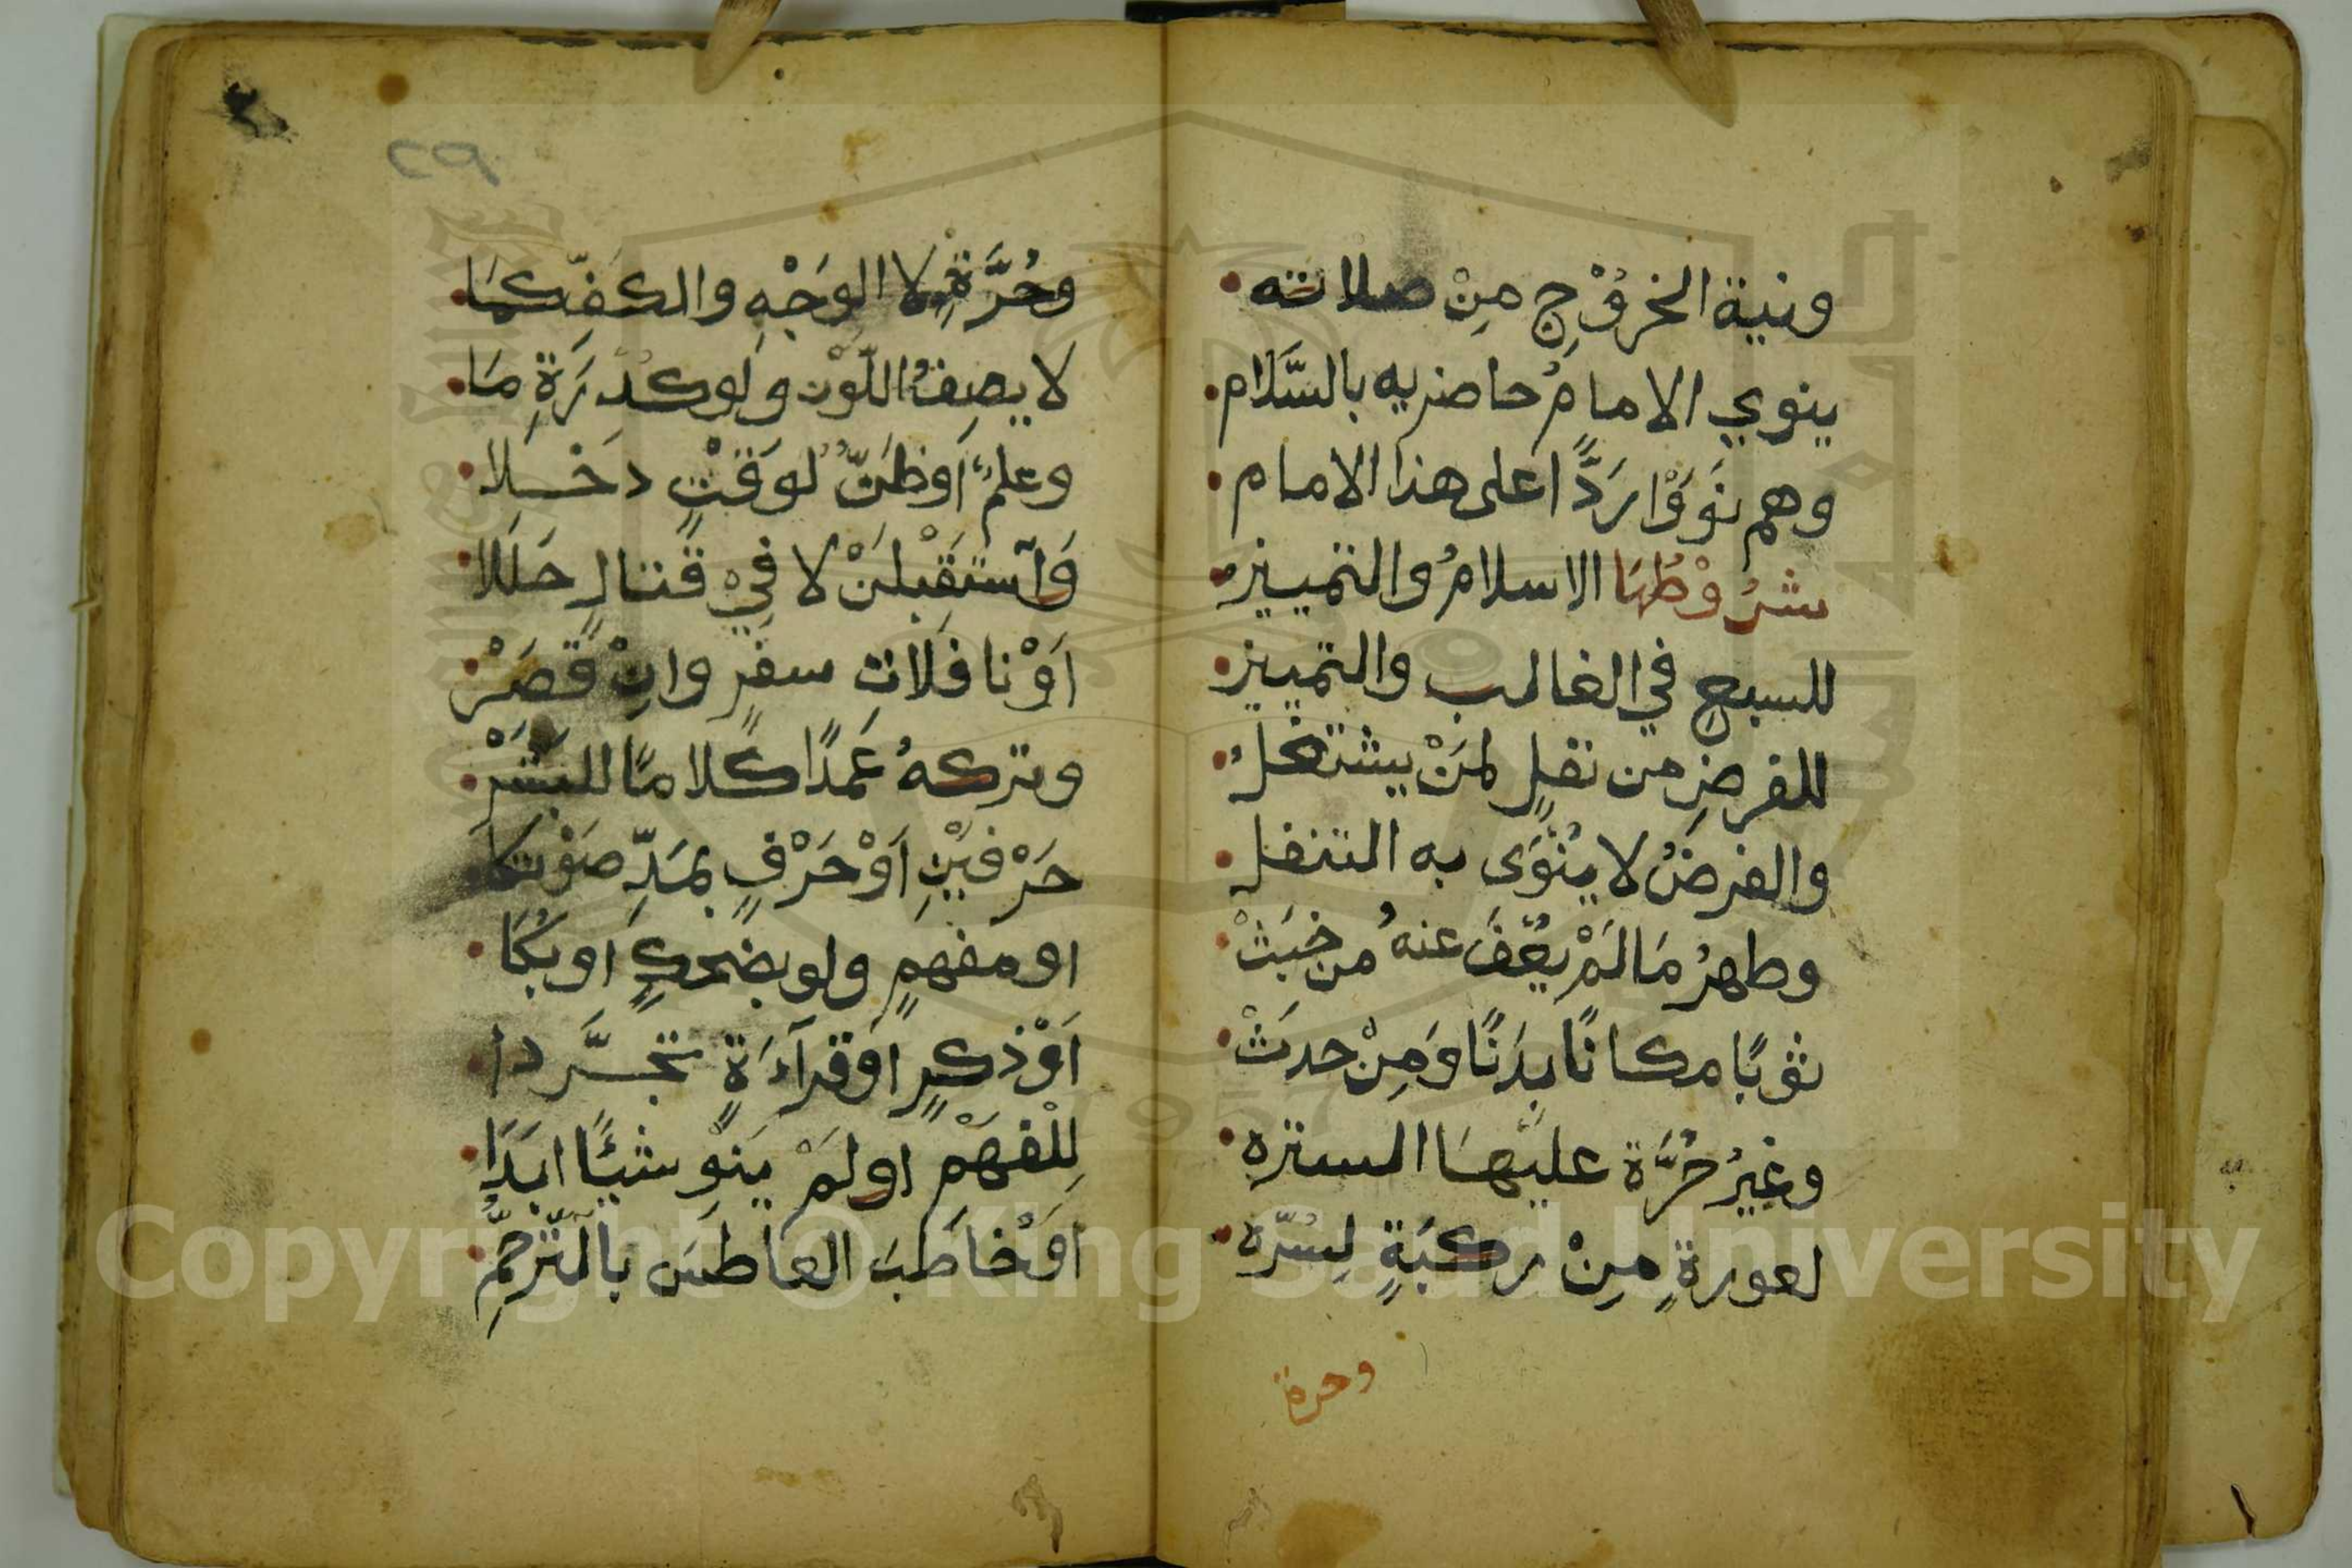 ونية الخرُوْجِ مِنْ صلاته
ينوي الامامُ حاضريه بالسَّلَام
وهم نَوَوْا رَدًّا على هذا الامام
شرُوْطُهَا الاسلامُ والتمييز
للسبعِ في الغالب والتمييز
للفرضِ من نفلٍ لمَنْ يشتغلُ
والفرضُ لا يُنْوَى به التنفل
وطهرُ مَا لَمْ يُعْفَ عنهُ من خبَثْ
ثوبًا مكانًا بدَنًا وَمِنْ حدَثْ
وغيرُ حُرَّة عليهَا السترة
لعورةٍ مِنْ ركبَةٍ لِسُرّه
وحرة
٢٩
وحُرَّةٌ لا الوَجْهِ والكفِّ كمَا
لا يصِفُ اللّوْن ولو كُدْرَةِ مَا
وعلمٌ أوظَنٌّ لوَقْتٍ دَخَلا
وَاستَقْبلَنْ لا فِيْ قتالٍ حَلَلا
اَوْ نافلاتِ سفرٍ وانِْ قَصَرْ
وتركهُ عَمدًا كلامًا للبَشَرْ
حَرْفيْنِ اَوْ حَرْفٍ بمَدِّ صَوْتكَا
او مفهمٍ ولو بضحكٍ او بُكَا
اَوْ ذكرٍ اَوْ قرآءَةٍ تجَرَّدا
لِلْفهْمِ او لَمْ يَنوِ شيْئًا ابَدَا
اَوْ خاطَبَ العاطسَ بالتّرَحُّمِ
Copyright © King Saud University
1957